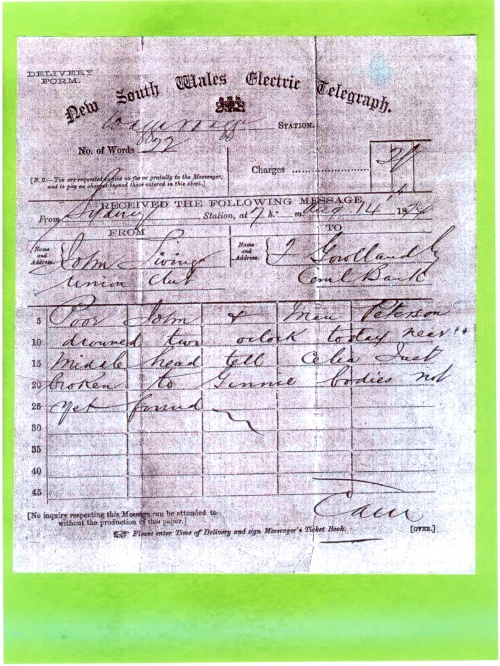 DELIVERY
FORM.
New South Wales Electric Telegraph.
STATION.
No. of Words 22
Charges
[N.B.—You are requested to give no fee or gratuity to the Messenger,
and to pay no charges beyond those entered in this sheet.]
RECEIVED THE FOLLOWING MESSAGE,
From Sydney Station, at 7 h. m Aug 14 18
FROM TO
Name and Address. John Name and Address. Gowlland
Union Club Coml Bank
5 Poor John & Man Peterson
10 drowned two oclock today near
15 Middle head tell Celia Just
20 broken to Gennie bodies not
25 yet found
30
35
40
45
[No inquiry respecting this Message can be attended to
without the production of this paper.]
☞ Please enter Time of Delivery and sign Messenger's Ticket Book.
[OVER.]